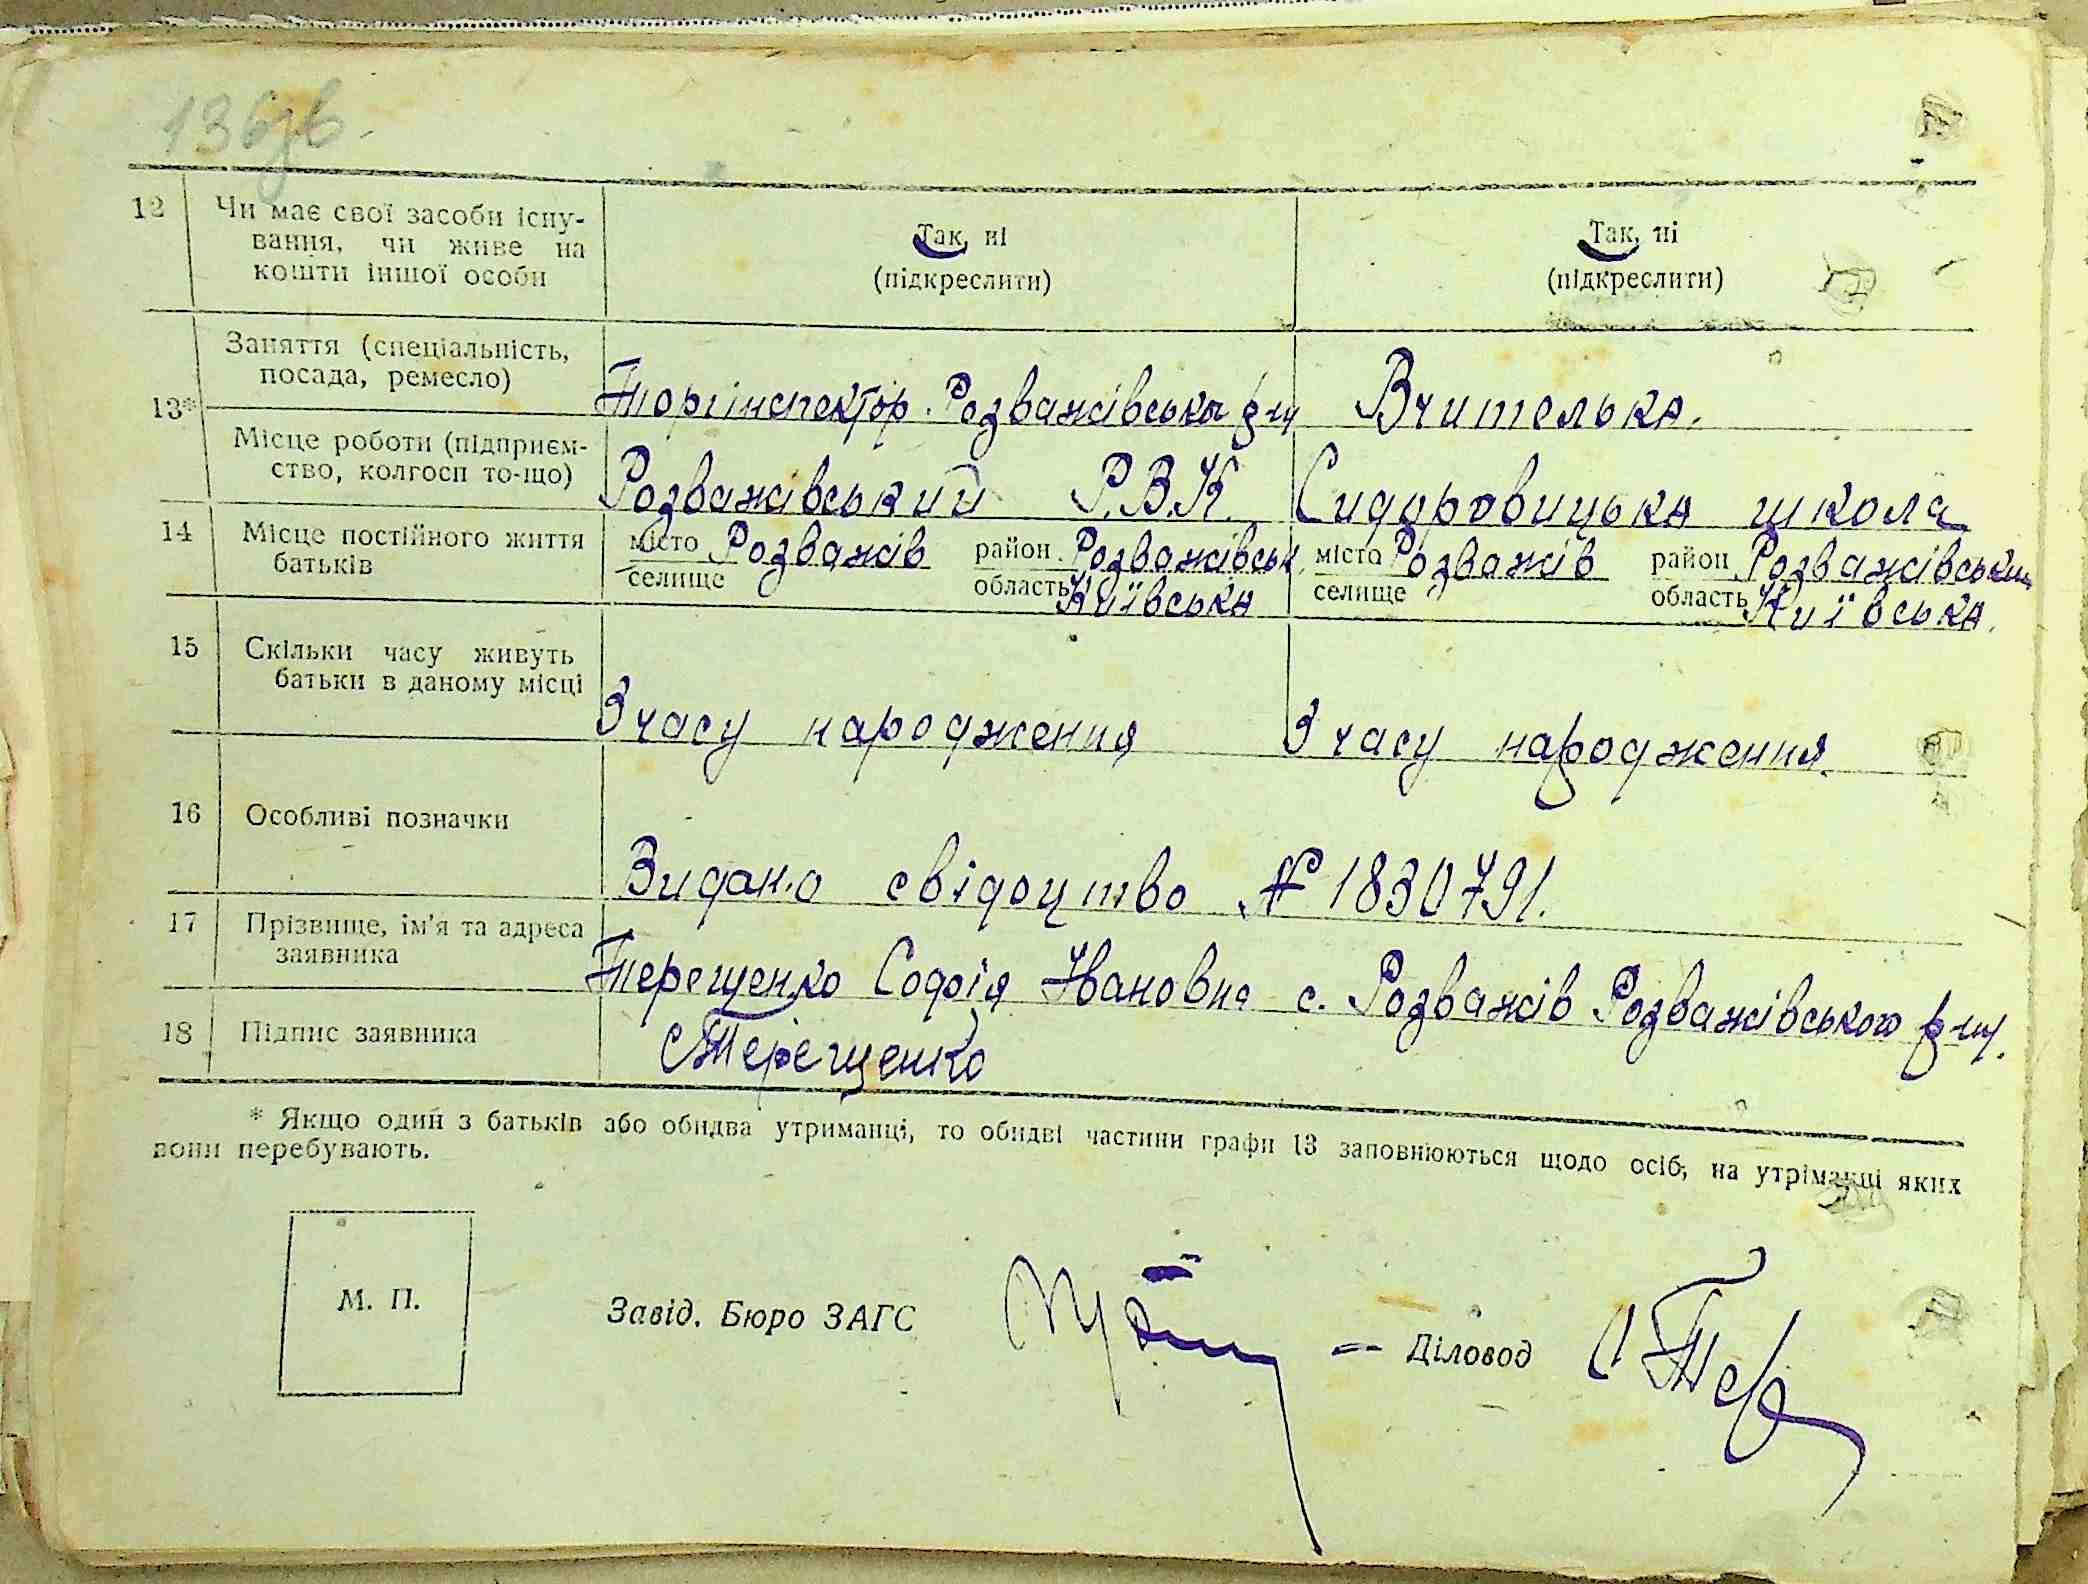 136зв.
12 Чи має свої засоби існу-
вання, чи живе на
кошти іншої особи
Так, ні
(підкреслити)
Так, ні
(підкреслити)
13*
Заняття (спеціальність,
посада, ремесло)
Торгінспектор. Розважівськ
Вчителька.
Місце роботи (підприєм-
ство, колгосп то-що)
Розважівський Р.В.К.
Сидоровицька школа
14 Місце постійного життя
батьків
місто Розважів район Розважівськ.
селище область Київська
місто Розважів район Розважівський
селище область Київська.
15 Скільки часу живуть
батьки в даному місці
З часу народження
З часу народження.
16 Особливі позначки
Видано свідоцтво № 1830791.
17 Прізвище, ім'я та адреса
заявника
Терещенко Софія Івановна с. Розважів Розважівського р-ну.
18 Підпис заявника
СТерещенко
* Якщо один з батьків або обидва утриманці, то обидві частини графи 13 заповнюються щодо осіб, на утріманці яких
вони перебувають.
М. П.
Завід. Бюро ЗАГС
Діловод